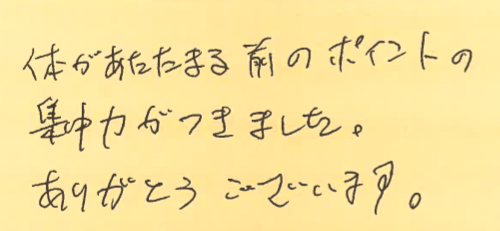 体があたたまる前のポイントの
集中力がつきました。
ありがとうございます。